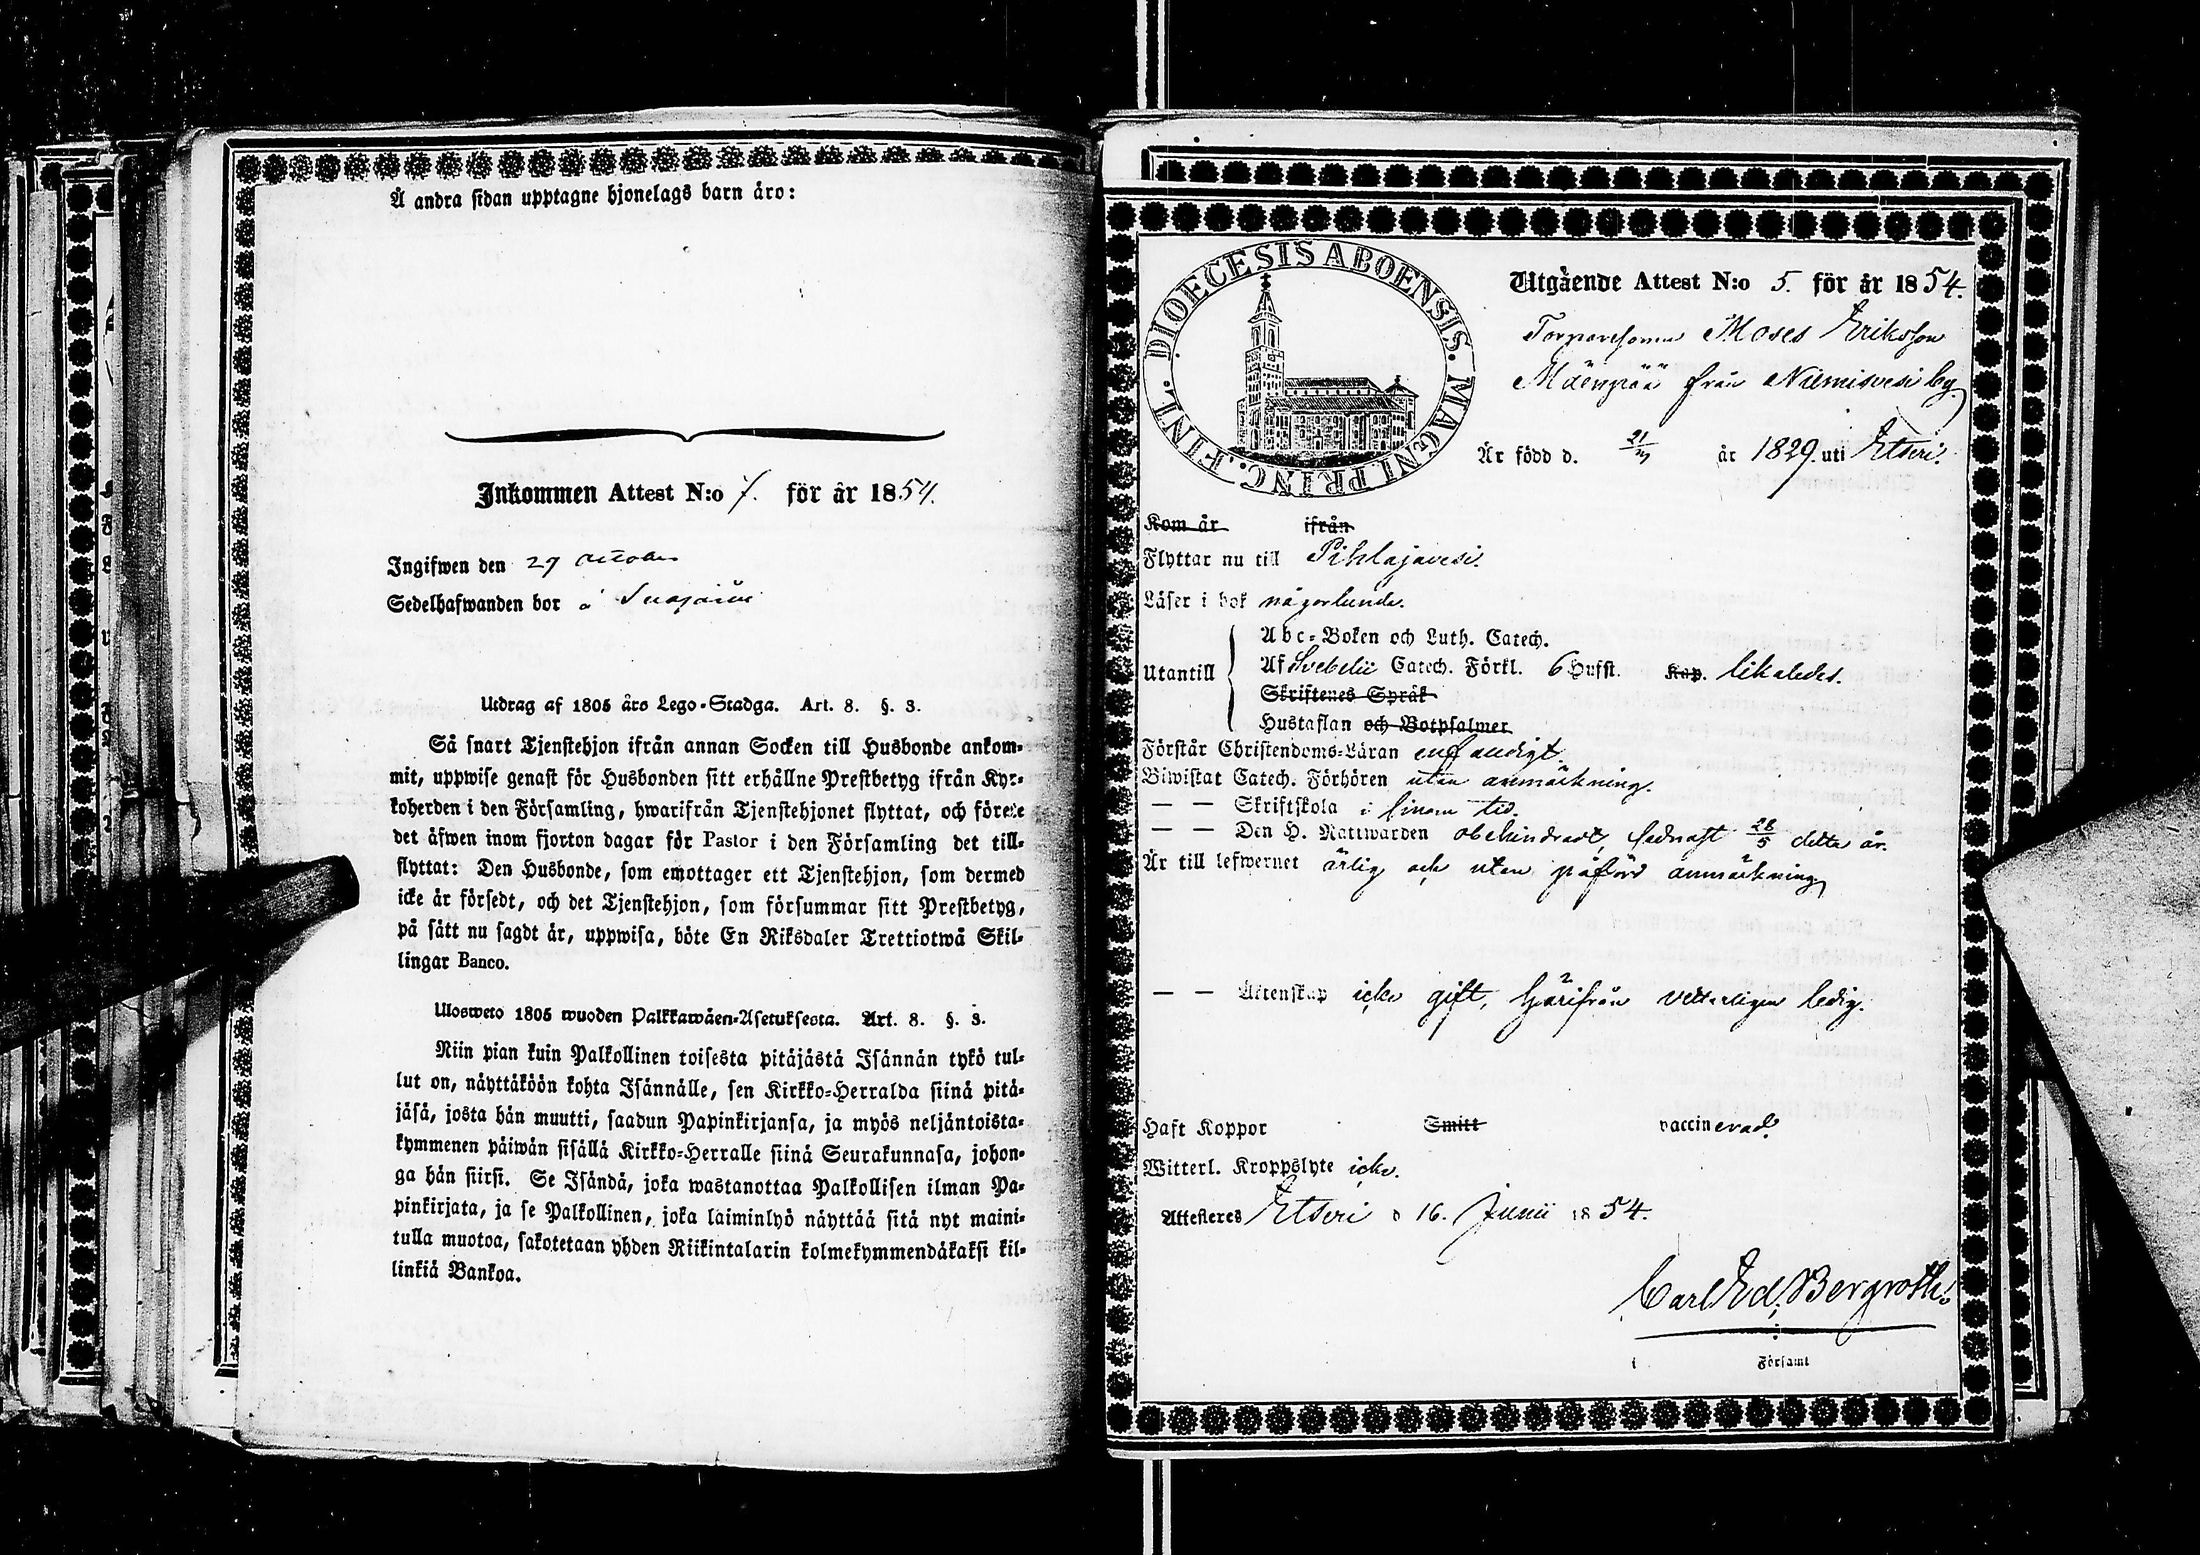 Å andra sidan upptagne hjonelags barn äro:
Inkommen Attest N:o 7. för år 1854.
Ingifwen den 29 October
Sedelhafwanden bor å
Utdrag af 1805 års Lego-Stadga. Art. 8. §. 3.
Så snart Tjenstehjon ifrån annan Socken till Husbonde ankom-
mit, uppwise genast för Husbonden sitt erhållne Prestbetyg ifrån Kyr-
koherden i den Församling, hwarifrån Tjenstehjonet flyttat, och förete
det äfwen inom fjorton dagar för Pastor i den Församling det till-
flyttat: Den Husbonde, som emottager ett Tjenstehjon, som dermed
icke är försedt, och det Tjenstehjon, som försummar sitt Prestbetyg,
på sätt nu sagdt är, uppwisa, böte En Riksdaler Trettiotwå Skil-
lingar Banco.
Ulosweto 1805 wuoden Palkkawäen-Asetuksesta. Art. 8. §. 3.
Niin pian kuin Palkollinen toisesta pitäjästä Isännän tykö tul-
lut on, näyttäköön kohta Isännälle, sen Kirkko-Herralda siinä pitä-
jäsä, josta hän muutti, saadun Papinkirjansa, ja myös neljäntoista-
kymmenen päiwän sisällä Kirkko-Herralle siinä Seurakunnasa, johon-
ga hän siirsi. Se Isändä, joka wastanottaa Palkollisen ilman Pa-
pinkirjata, ja se Palkollinen, joka laiminlyö näyttää sitä nyt maini-
tulla muotoa, sakotetaan yhden Riikintalarin kolmekymmendäkaksi kil-
linkiä Bankoa.
DIOECESIS ABOENSIS. MAGNI PRINC. FINL.
Utgående Attest N:o 5. för år 1854.
Torparesonen Moses Eriksson
Mäenpää från Niemisvesi by
Är född d. 21/ år 1829. uti Etseri.
Kom år ifrån
Flyttar nu till Pihlajavesi.
Läser i bok någorlunda.
Abc-Boken och Luth. Catech.
Utantill Af Svebelii Catech. Förkl. 6 Hufst. Kap. likaledes.
Skriftenes Språk
Hustaflan och Botpsalmer
Förstår Christendoms-Läran enfaldigt.
Biwistat Catech. Förhören utan anmärkning.
— — Skriftskola i sinom tid.
— — Den H. Nattwarden obehindradt, sednast 28/5 detta år.
Är till lefwernet ärlig och utan påförd anmärkning
— — Äktenskap icke gift, härifrån vetterligen ledig.
Haft Koppor Smitt vaccinerad.
Witterl. Kroppslyte icke.
Attesteres Etseri d 16. Junii 1854.
Carl Ed. Bergroth.
i Församl